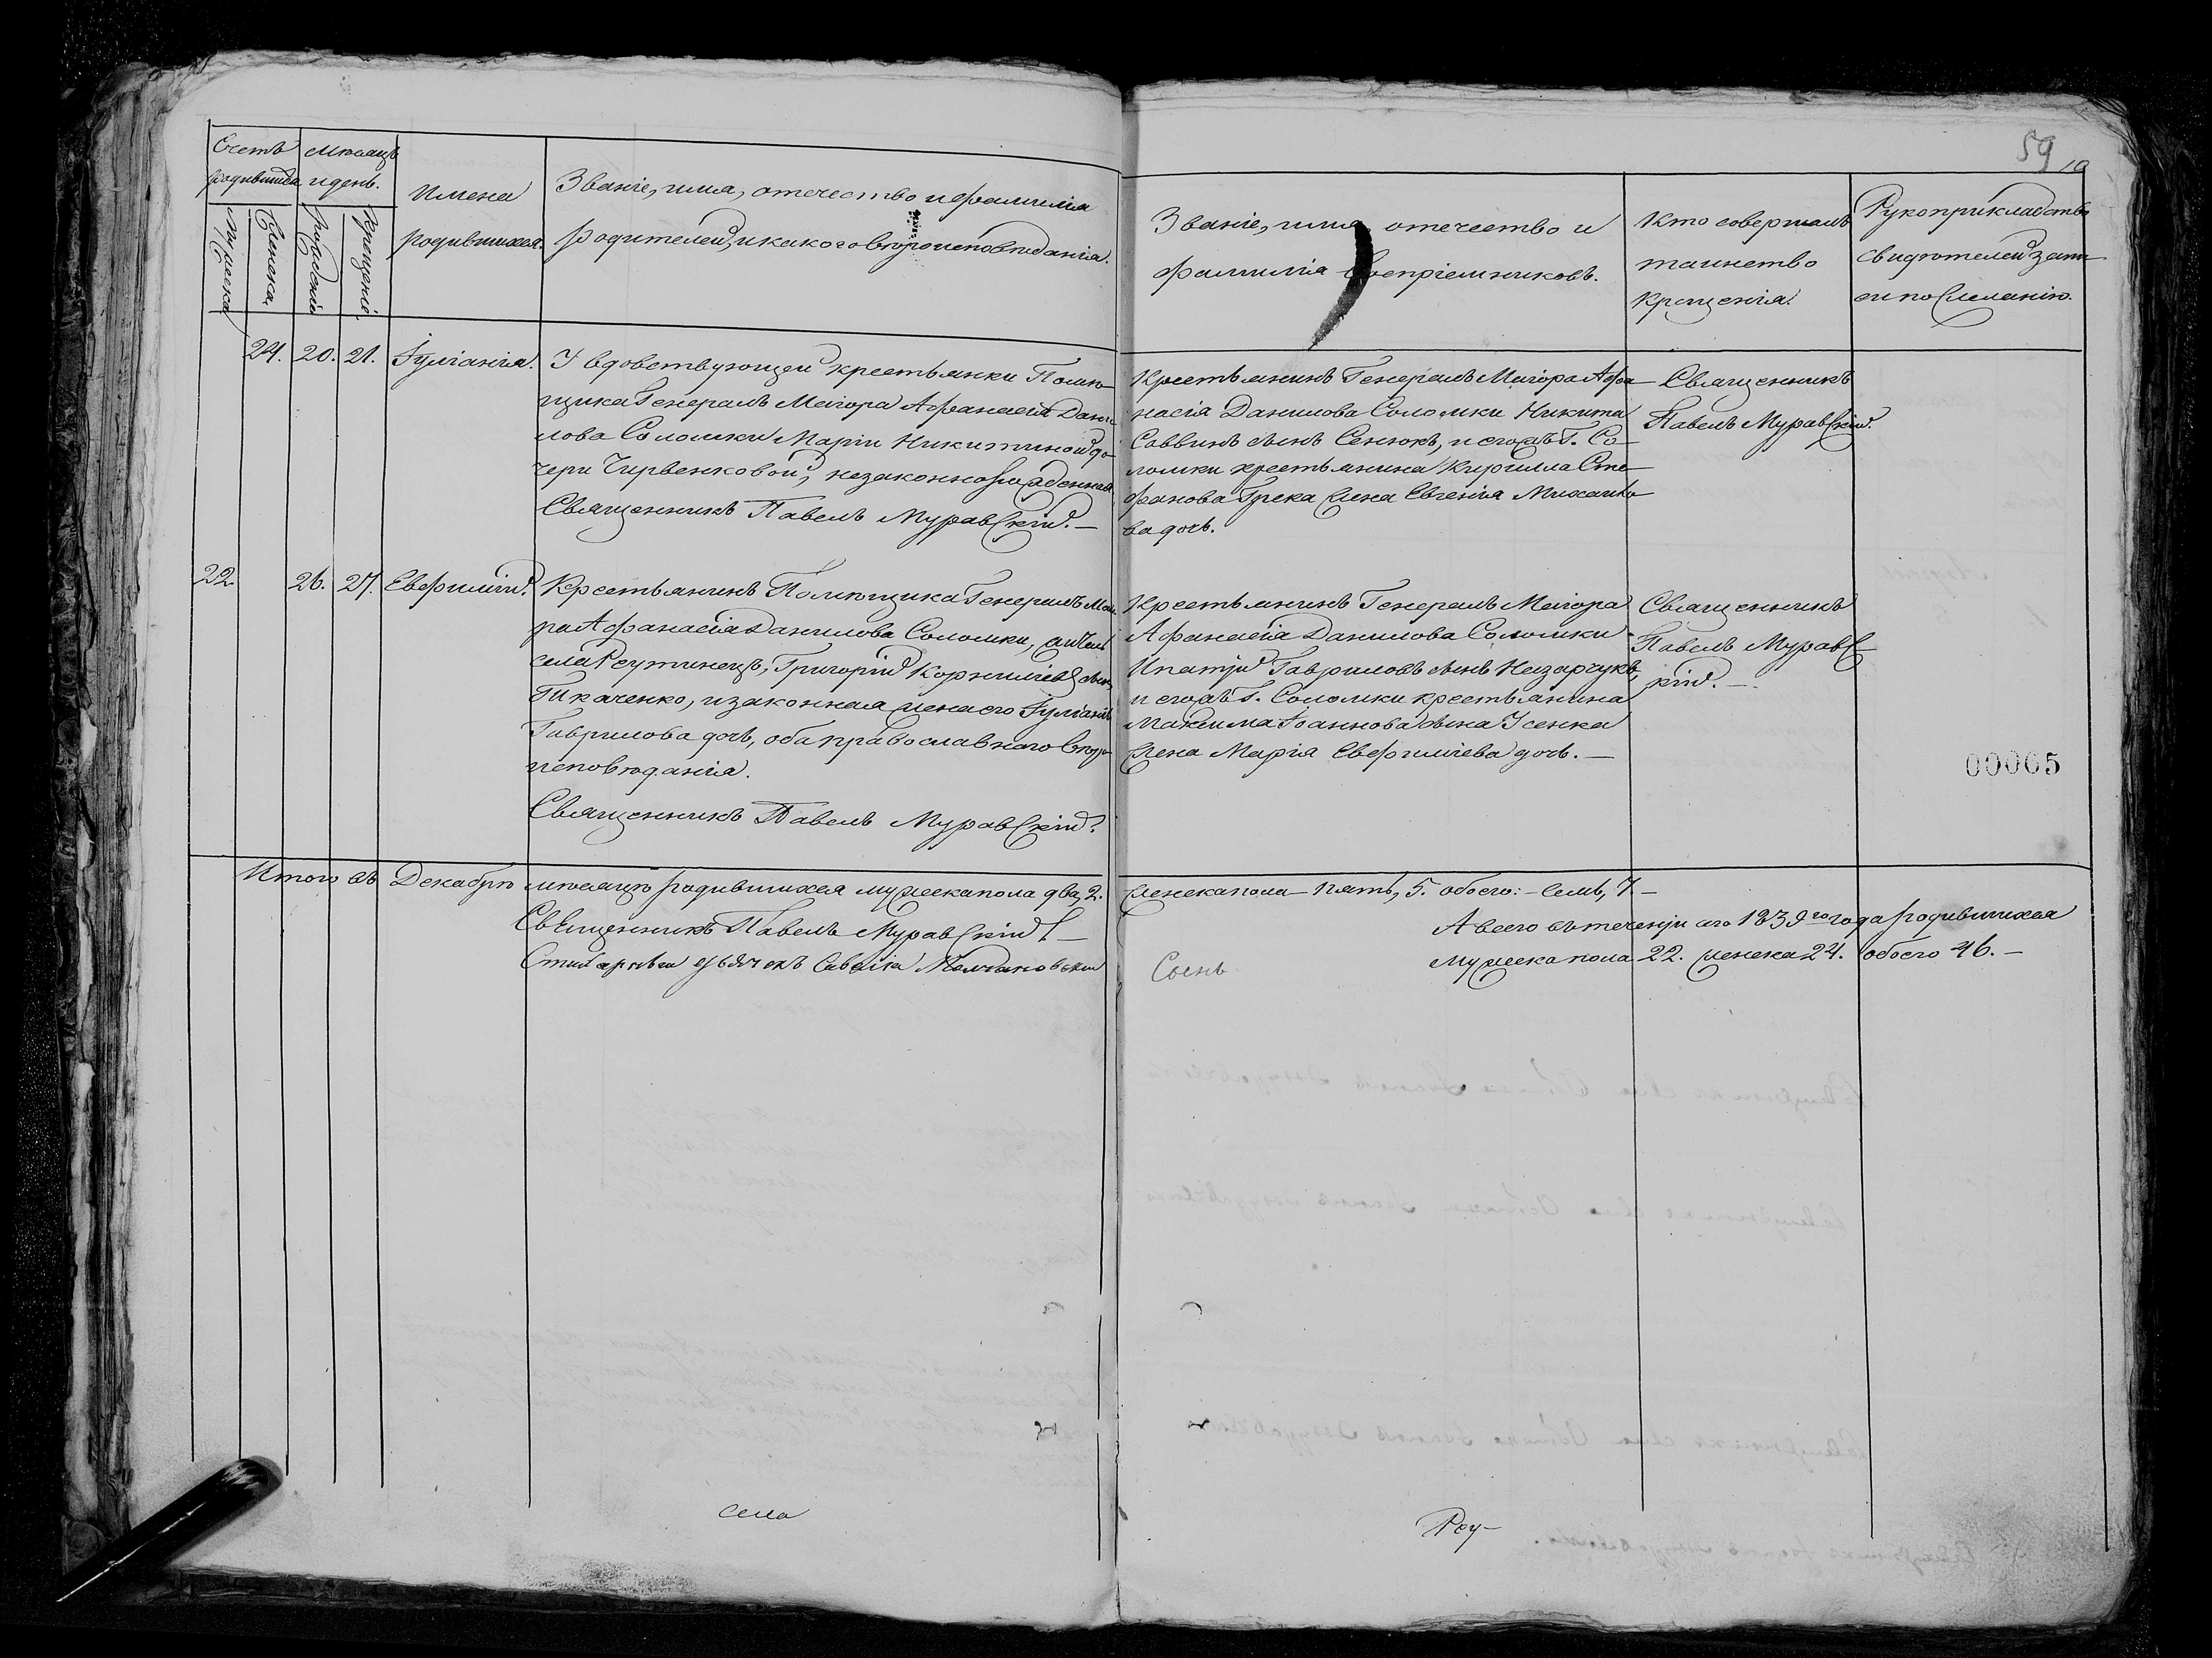 59
10
Счетъ
родившихся
Мѣсяцъ
и день.
Мужеска
Женска
Рожденія
Крещенія
Имена
родившихся.
Званіе, имя, отечество и фамилія
родителей, и какого вѣроисповѣданія.
Званіе, имя, отечество и
фамилія воспріемниковъ.
Кто совершалъ
таинство
крещенія.
Рукоприкладство
свидѣтелей запи
си по желанію.
24. 20. 21. Іуліанія.
У вдовствующей крестьянки Помѣ-
щика Генералъ Маіора Афанасія Дани
лова Соломки Маріи Никитиной до-
чери Чирвенковой, незаконнорожденная
Священникъ Павелъ Муравскій. —
Крестьянинъ Генералъ Маіора Афа-
насія Данилова Соломки Никита
Саввинъ сынъ Сенюкъ, и егожъ Г. Со-
ломки крестьянина Кирилла Сте-
фанова Грека жена Евгенія Михайло-
ва дочь.
Священникъ
Павелъ Муравскій.
22 26. 27. Евфимій.
Крестьянинъ Помѣщика Генералъ Маіо
ра Афанасія Данилова Соломки, житель
села Реутинецъ, Григорій Корниліевъ сынъ
Ткаченко, и законная жена его Іуліанія
Гаврилова дочь, оба православнаго вѣро-
исповѣданія.
Священникъ Павелъ Муравскій.
Крестьянинъ Генералъ Маіора
Афанасія Данилова Соломки
Ипатій Гавриловъ сынъ Назарчукъ,
и егожъ Г. Соломки крестьянина
Максима Іоаннова сына Усенка
жена Марія Евфиміева дочь. —
Священникъ
Павелъ Муравс-
кій. —
00005
Итого въ Декабрѣ мѣсяцѣ родившихся мужеска пола два, 2. женска пола — пять, 5. обоего: — семь, 7 —
Священникъ Павелъ Муравскій
А всего въ теченіи сего 1839го года родившихся
мужеска пола 22. женска 24. обоего 46. —
села
Реу-